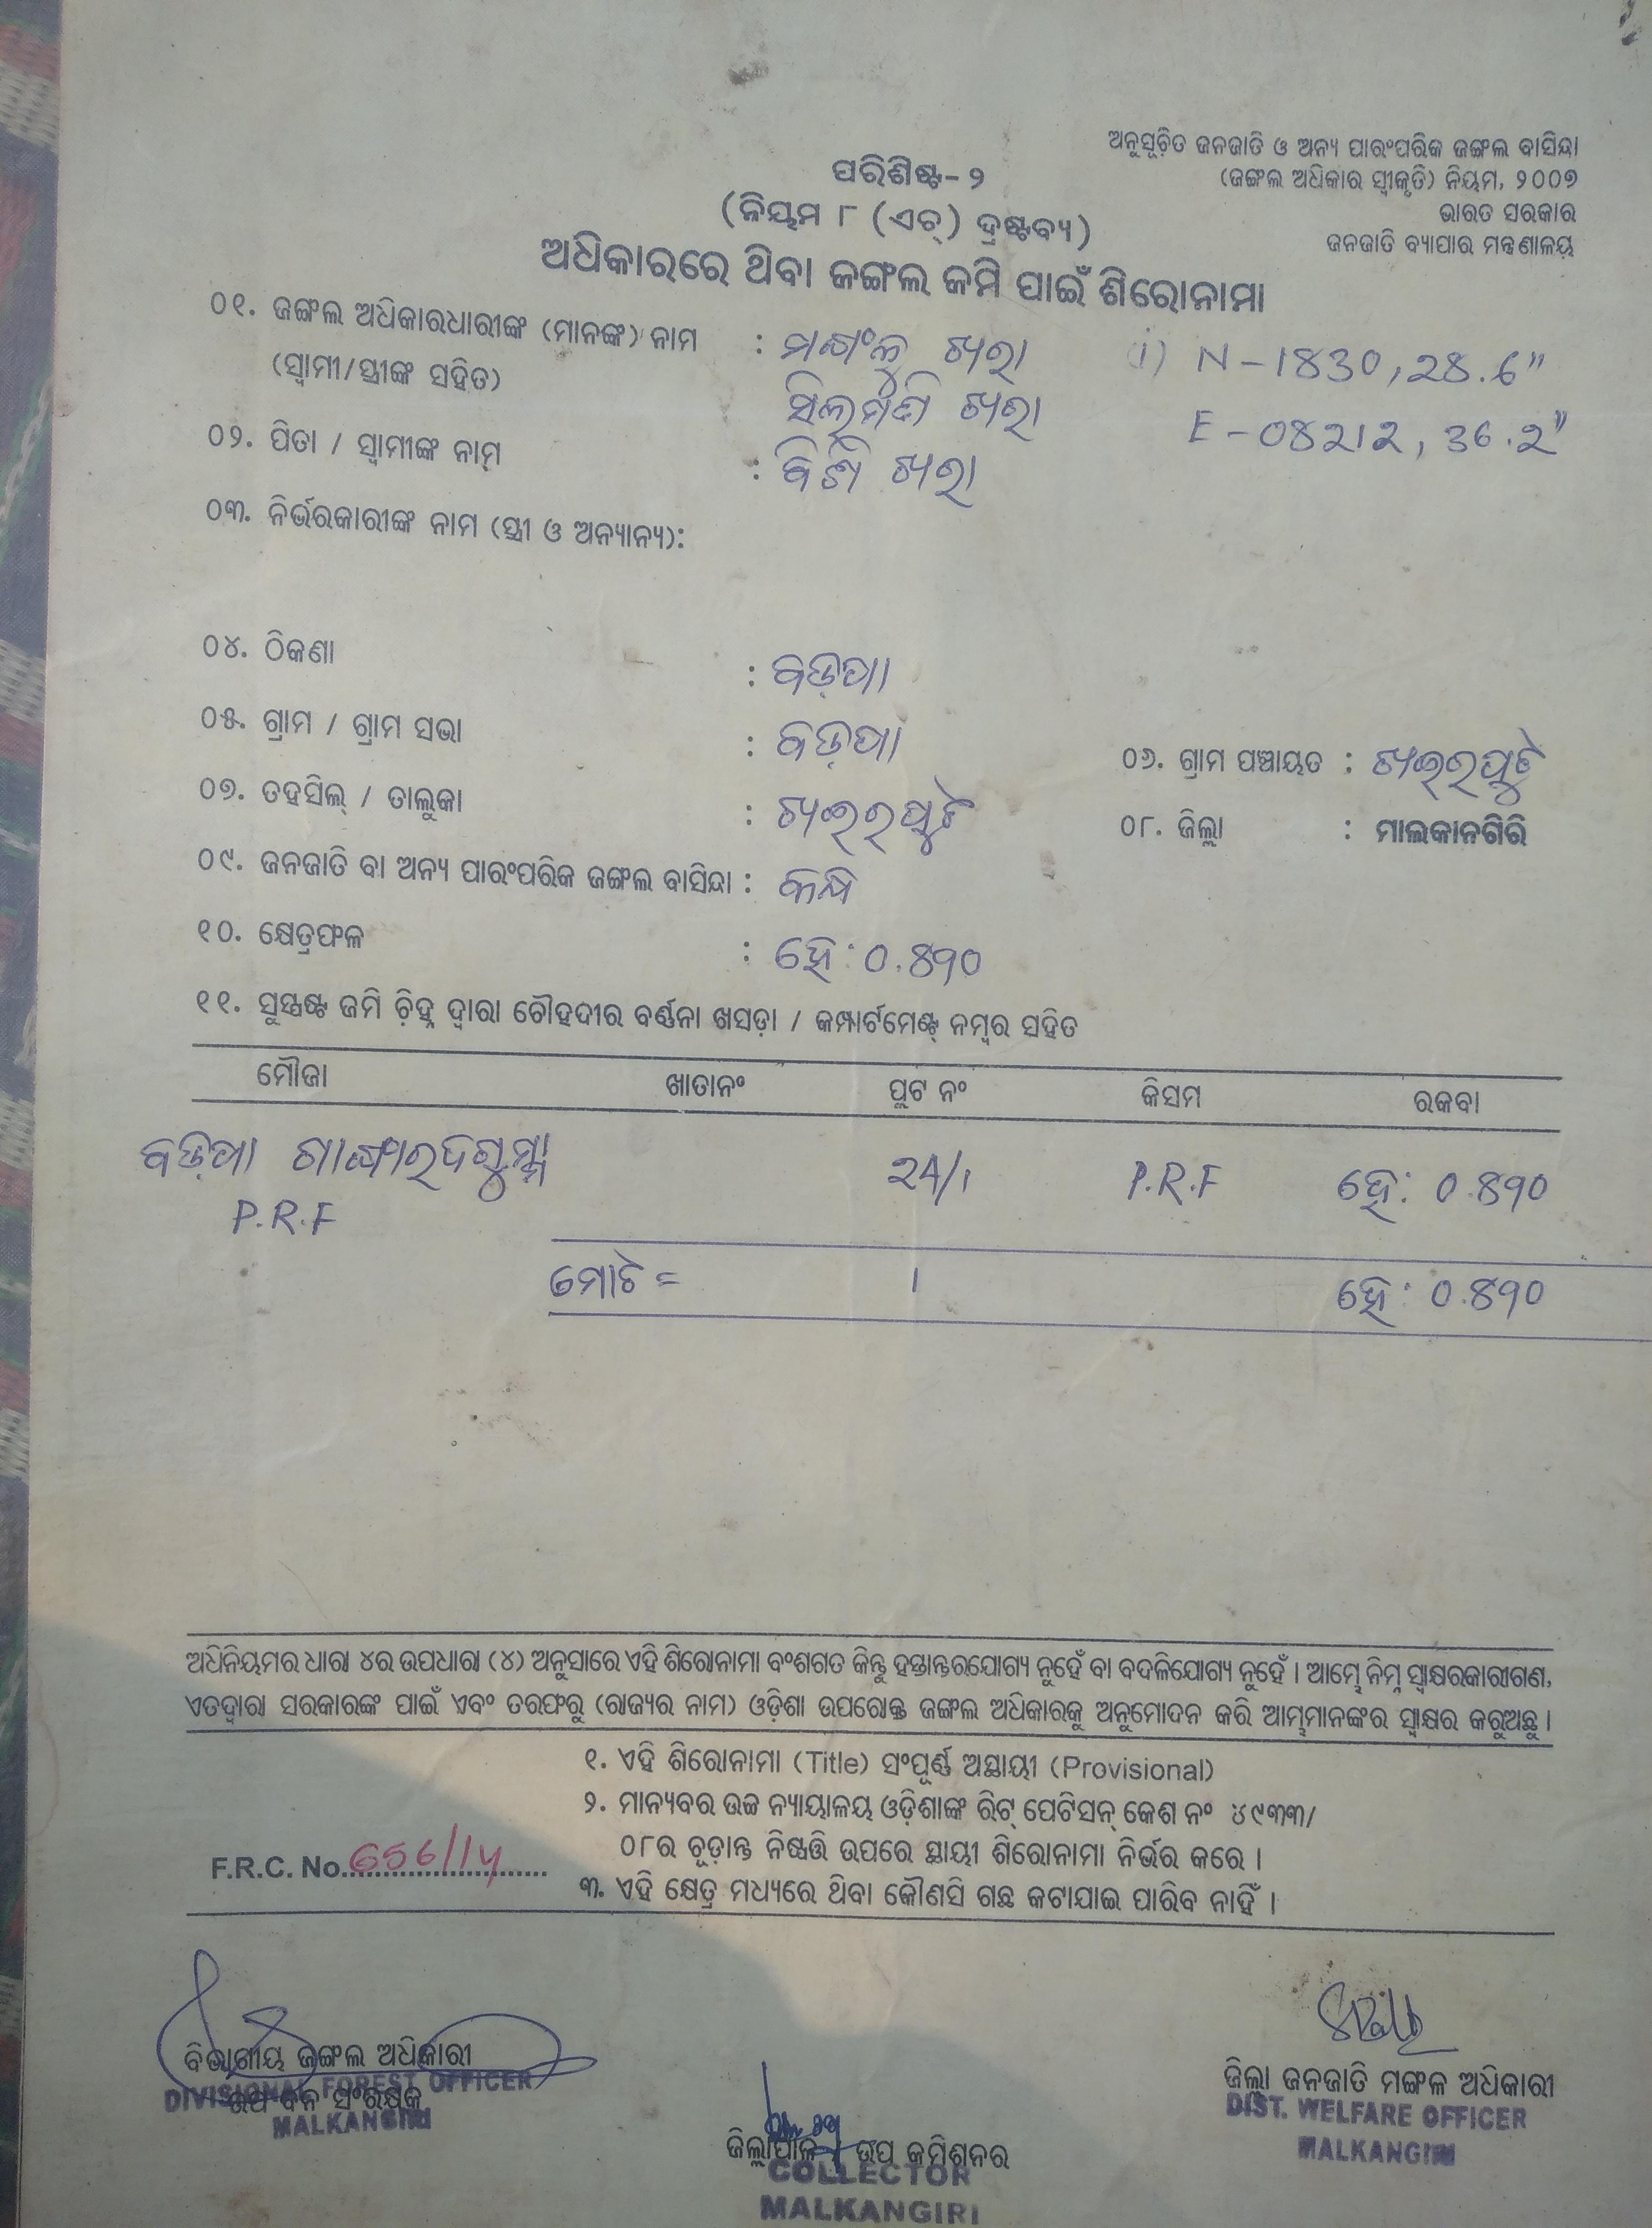 ଅନୁସୂଚିତ ଜନଜାତି ଓ ଅନ୍ୟ ପାରଂପରିକ ଜଙ୍ଗଲ ବାସିନ୍ଦା
(ଜଙ୍ଗଲ ଅଧିକାର ସ୍ୱୀକୃତି) ନିୟମ, ୨୦୦୭
ଭାରତ ସରକାର
ଜନଜାତି ବ୍ୟାପାର ମନ୍ତ୍ରଣାଳୟ
ପରିଶିଷ୍ଟ-୨
(ନିୟମ ୮ (ଏଚ୍) ଦ୍ରଷ୍ଟବ୍ୟ)
ଅଧିକାରରେ ଥିବା ଜଙ୍ଗଲ ଜମି ପାଇଁ ଶିରୋନାମା
୦୧. ଜଙ୍ଗଲ ଅଧିକାରଧାରୀଙ୍କ (ମାନଙ୍କ) ନାମ : ଖରା (1) N-1830,28.6"
(ସ୍ୱାମୀ/ସ୍ତ୍ରୀଙ୍କ ସହିତ) ଖରା E-08212, 36.2"
୦୨. ପିତା / ସ୍ୱାମୀଙ୍କ ନାମ : ଖରା
୦୩. ନିର୍ଭରକାରୀଙ୍କ ନାମ (ସ୍ତ୍ରୀ ଓ ଅନ୍ୟାନ୍ୟ):
୦୪. ଠିକଣା : ବଡ଼ପା
୦୫. ଗ୍ରାମ / ଗ୍ରାମ ସଭା : ବଡ଼ପା ୦୬. ଗ୍ରାମ ପଞ୍ଚାୟତ : ଖଇରପୁଟ
୦୭. ତହସିଲ୍ / ତାଲୁକା : ଖଇରପୁଟ ୦୮. ଜିଲ୍ଲା : ମାଲକାନଗିରି
୦୯. ଜନଜାତି ବା ଅନ୍ୟ ପାରଂପରିକ ଜଙ୍ଗଲ ବାସିନ୍ଦା : କନ୍ଧ
୧୦. କ୍ଷେତ୍ରଫଳ : ହେ: ୦.୪୧୦
୧୧. ସୁସ୍ପଷ୍ଟ ଜମି ଚିହ୍ନ ଦ୍ୱାରା ଚୌହଦୀର ବର୍ଣ୍ଣନା ଖସଡ଼ା / କମ୍ପାର୍ଟମେଣ୍ଟ୍ ନମ୍ବର ସହିତ
ମୌଜା ଖାତାନଂ ପ୍ଲଟ ନଂ କିସମ ରକବା
ବଡ଼ପା 24/1 P.R.F ହେ: ୦.୪୧୦
P.R.F
ମୋଟ = 1 ହେ: ୦.୪୧୦
ଅଧିନିୟମର ଧାରା ୪ର ଉପଧାରା (୪) ଅନୁସାରେ ଏହି ଶିରୋନାମା ବଂଶଗତ କିନ୍ତୁ ହସ୍ତାନ୍ତରଯୋଗ୍ୟ ନୁହେଁ ବା ବଦଳିଯୋଗ୍ୟ ନୁହେଁ । ଆମ୍ଭେ ନିମ୍ନ ସ୍ୱାକ୍ଷରକାରୀଗଣ,
ଏତଦ୍ୱାରା ସରକାରଙ୍କ ପାଇଁ ଏବଂ ତରଫରୁ (ରାଜ୍ୟର ନାମ) ଓଡ଼ିଶା ଉପରୋକ୍ତ ଜଙ୍ଗଲ ଅଧିକାରକୁ ଅନୁମୋଦନ କରି ଆମ୍ଭମାନଙ୍କର ସ୍ୱାକ୍ଷର କରୁଅଛୁ ।
୧. ଏହି ଶିରୋନାମା (Title) ସଂପୂର୍ଣ୍ଣ ଅସ୍ଥାୟୀ (Provisional)
୨. ମାନ୍ୟବର ଉଚ୍ଚ ନ୍ୟାୟାଳୟ ଓଡ଼ିଶାଙ୍କ ରିଟ୍ ପେଟିସନ୍ କେଶ ନଂ ୪୯୩୩/
୦୮ର ଚୂଡ଼ାନ୍ତ ନିଷ୍ପତ୍ତି ଉପରେ ସ୍ଥାୟୀ ଶିରୋନାମା ନିର୍ଭର କରେ ।
F.R.C. No. 656/14
୩. ଏହି କ୍ଷେତ୍ର ମଧ୍ୟରେ ଥିବା କୌଣସି ଗଛ କଟାଯାଇ ପାରିବ ନାହିଁ ।
ବିଭାଗୀୟ ଜଙ୍ଗଲ ଅଧିକାରୀ
DIVISIONAL FOREST OFFICER
ଉପ ବନ ସଂରକ୍ଷକ
MALKANGIRI
ଜିଲ୍ଲା ଜନଜାତି ମଙ୍ଗଳ ଅଧିକାରୀ
DIST. WELFARE OFFICER
MALKANGIRI
ଜିଲ୍ଲାପାଳ / ଉପ କମିଶନର
COLLECTOR
MALKANGIRI